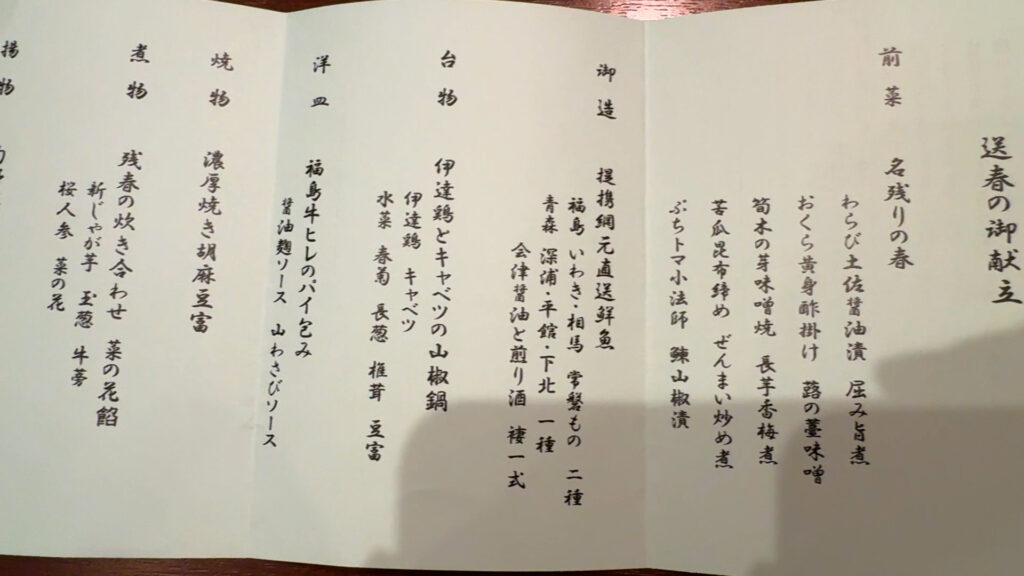 送春の御献立
前菜 名残りの春
わらび土佐醤油漬 屈み旨煮
おくら黄身酢掛け 蕗の薹味噌
筍木の芽味噌焼 長芋香梅煮
苦瓜昆布締め ぜんまい炒め煮
ぷちトマ小法師 鰊山椒漬
御造 提携網元直送鮮魚
福島 いわき・相馬 常磐もの 二種
青森 深浦・平館・下北 一種
会津醤油と煎り酒 褄一式
台物 伊達鶏とキャベツの山椒鍋
伊達鶏 キャベツ
水菜 春菊 長葱 椎茸 豆富
洋皿 福島牛ヒレのパイ包み
醤油麹ソース 山わさびソース
焼物 濃厚焼き胡麻豆富
煮物 残春の炊き合わせ 菜の花餡
新じゃが芋 玉葱 牛蒡
桜人参 菜の花
揚物